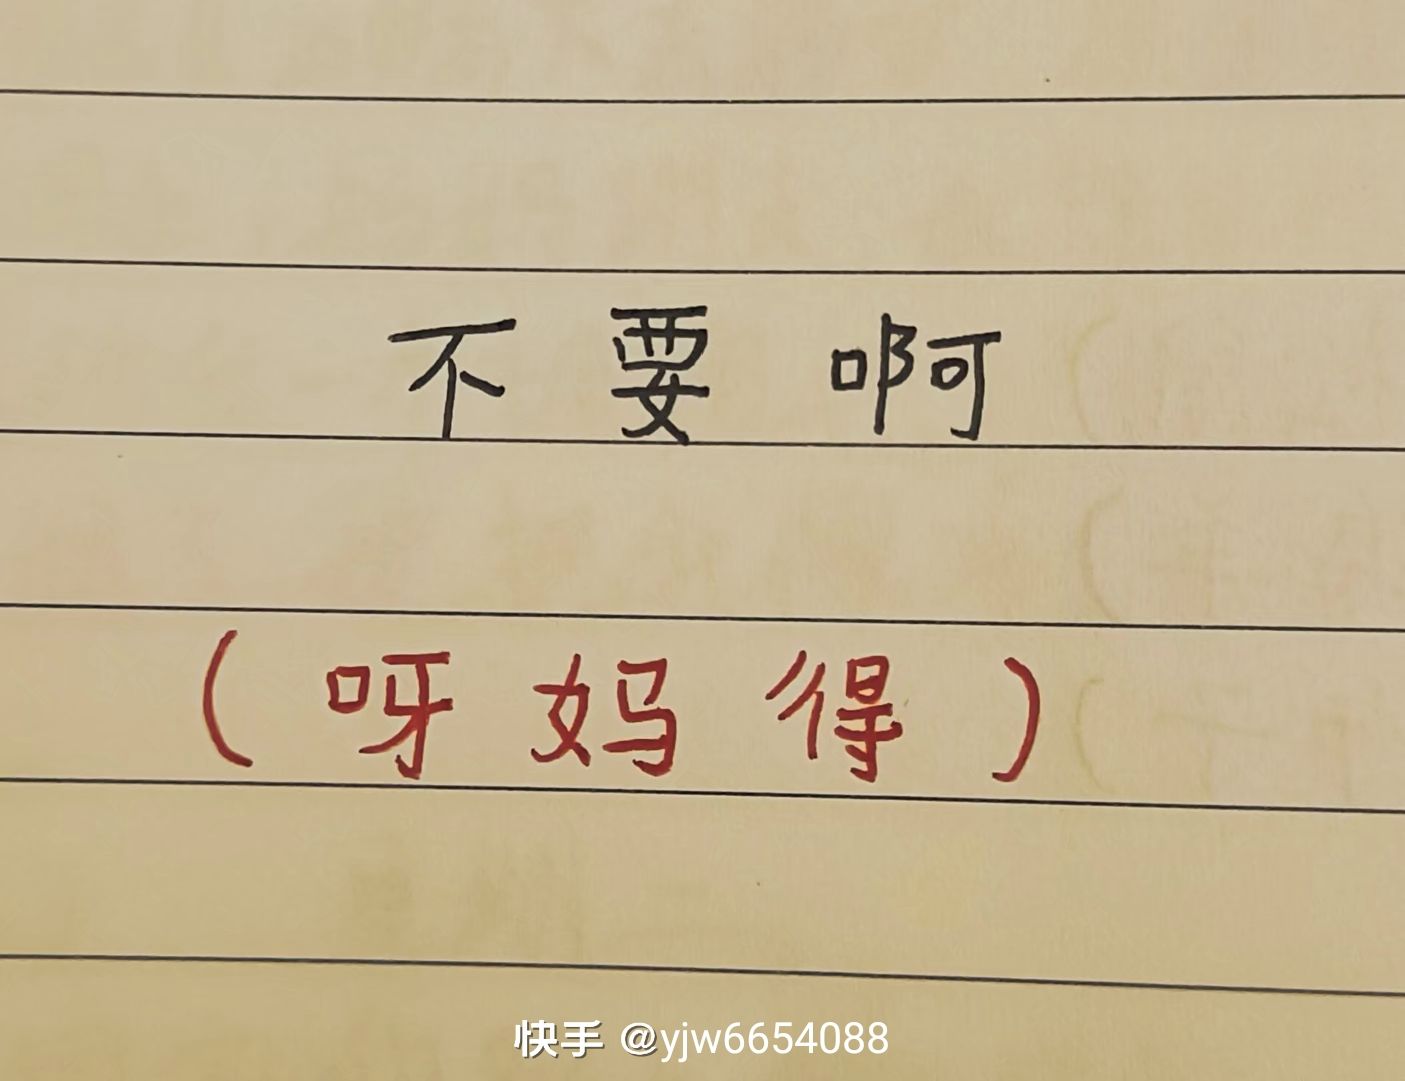 不要啊
（呀妈得）
快手 @yjw6654088